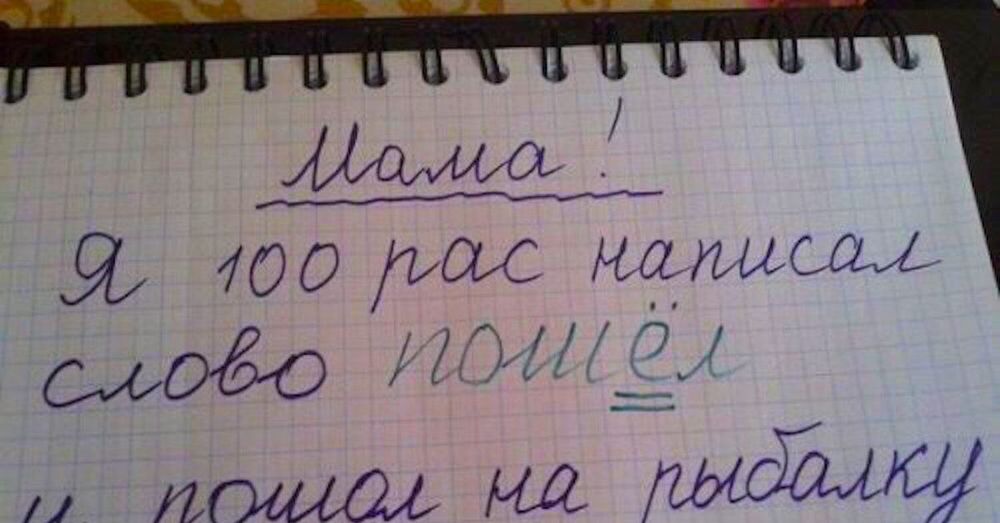 Мама!
Я 100 рас написал
слово пошёл
и пошол на рыбалку